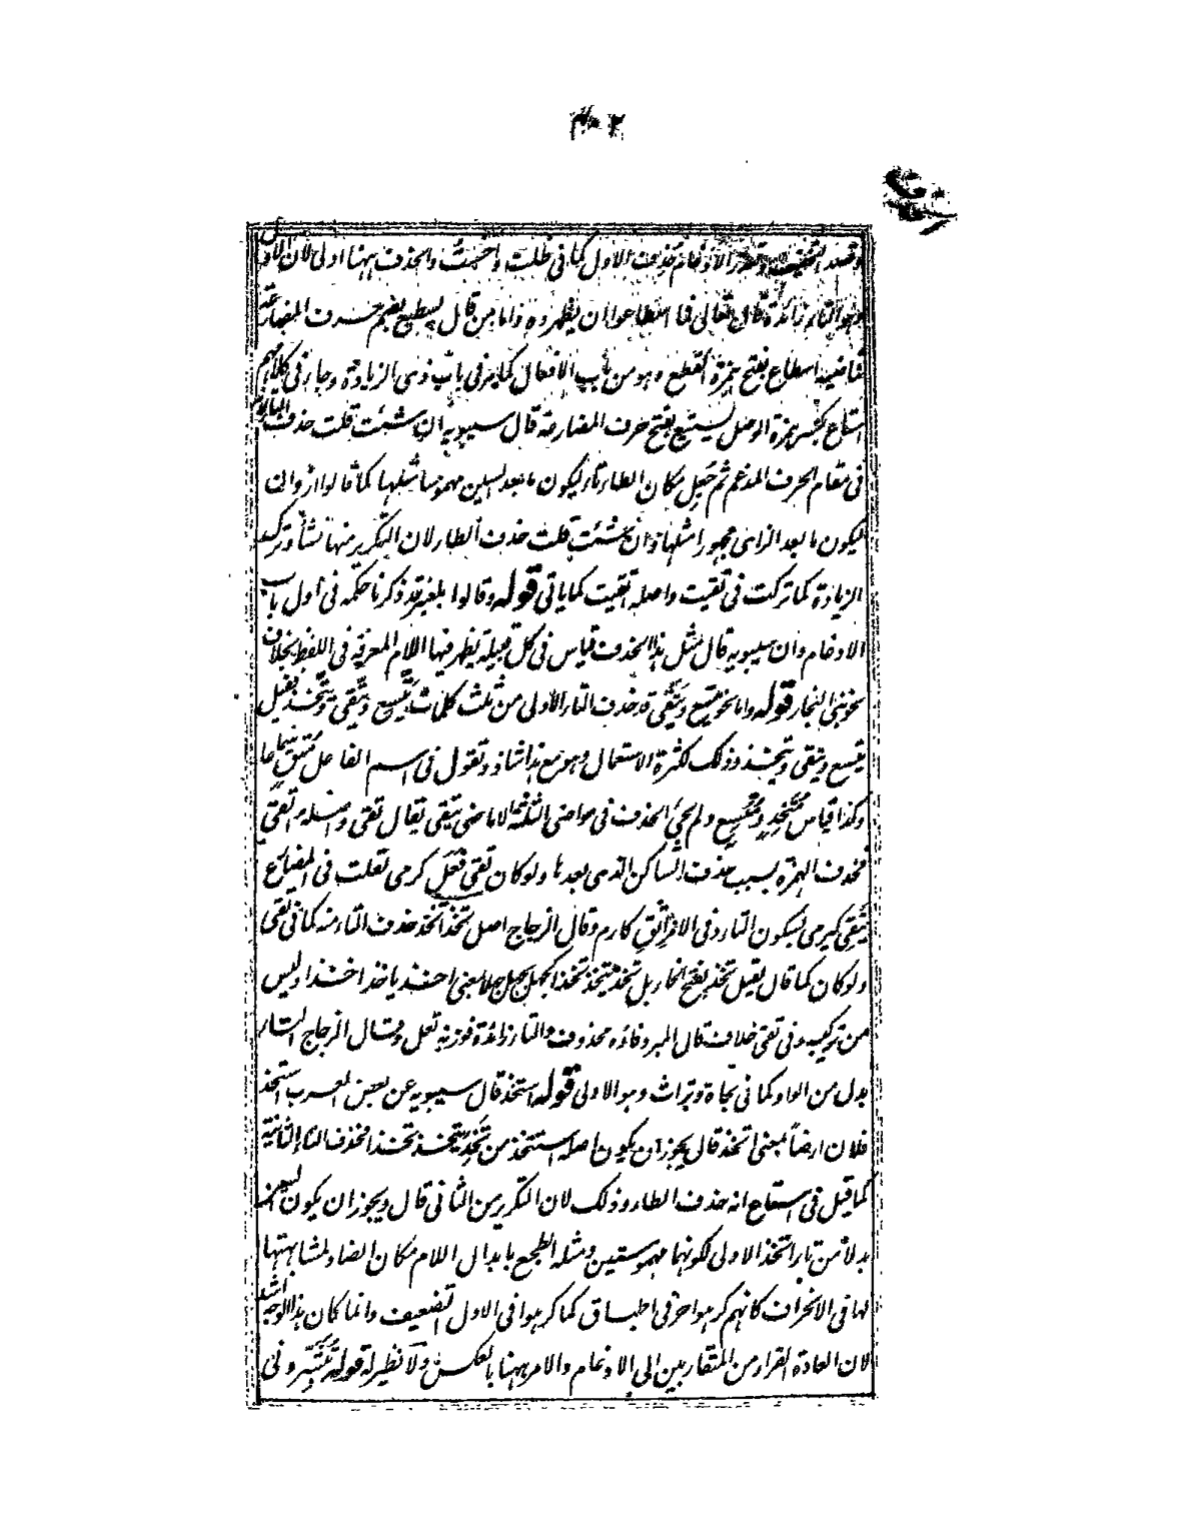 وقصد التخفيف وتعذر الادغام حذف الاول كما فى ظلت واحست والحذف ههنا اولى لان الاول
وهو التاء زائدة قال تعالى فما اسطاعوا ان يظهروه واما من قال يسطيع بضم حرف المضارعة
فماضيه اسطاع بفتح همزة القطع وهو من باب الافعال كما مر فى باب ذى الزيادة وجاء فى كلامهم
استاع بكسر همزة الوصل يستيع بفتح حرف المضارعة قال سيبويه ان شئت قلت حذفت التاء
فى مقام الحرف المدغم ثم جعل مكان الطاء تاء ليكون ما بعد السين مهموسا مثلها كما قالوا ازدان
ليكون ما بعد الزاى مجهورا مثلها وان شئت قلت حذف الطاء لان التكرير منها نشأ وترك
الزيادة كما تركت فى تقيت واصله اتقيت كما ياتى قوله وقالوا بلعنبر قد ذكرنا حكمه فى اول باب
الادغام وان سيبويه قال مثل هذا الحذف قياس فى كل قبيلة يظهر فيها اللام المعرفة فى اللفظ بخلاف
نحو بنى النجار قوله واما نحو يتسع ويتقى قد حذف التاء الاولى من ثلث كلمات يتسع ويتقى ويتخذ فقيل
يتسع ويتقى ويتخذ وذلك لكثرة الاستعمال وهو مع هذا شاذ وتقول فى اسم الفاعل متق سماعا
وكذا قياس متخذ ومتسع ولم يجئ الحذف فى مواضى الثلثة الا ماضى يتقى يقال تقى واصله اتقى
فحذف الهمزة بسبب حذف الساكن الذى بعدها ولو كان تقى فعل كرمى لقلت فى المضارع
يتقى كيرمى بسكون التاء وفى الامر اتق كارم وقال الزجاج اصل تخذ اتخذ حذف التاء منه كما فى تقى
ولو كان كما قال لقيل تخذ بفتح الخاء بل تخذ يتخذ تخذا كجهل يجهل جهلا بمعنى اخذ ياخذ اخذا وليس
من تركيبه وفى تقى خلاف قال المبرد فاؤه محذوف والتاء زائدة فوزنه تعل وقال الزجاج التاء
بدل من الواو كما فى تجاة وتراث وهو الاولى قوله استخذ قال سيبويه عن بعض العرب استخذ
فلان ارضاً بمعنى اتخذ قال يجوز ان يكون اصله استتخذ من تخذ يتخذ تخذا فحذف التاء الثانية
كما قيل فى استاع انه حذف الطاء وذلك لان التكرير من الثانى قال ويجوز ان يكون السين
بدلا من تاء اتخذ الاولى لكونهما مهموستين ومثله الطجع بابدال اللام مكان الضاد لمشابهتها
لها فى الانحراف كانهم كرهوا حرفى اطباق كما كرهوا فى الاول التضعيف وانما كان هذا الوجه اشذ
لان العادة الفرار من المتقاربين الى الادغام والامر ههنا بالعكس ولا نظير له قوله تبشرونى